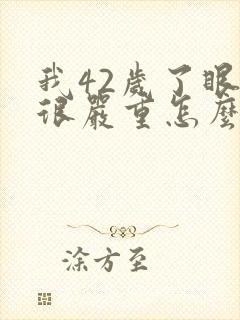 我42歲了眼
很嚴重怎麼
涂方至